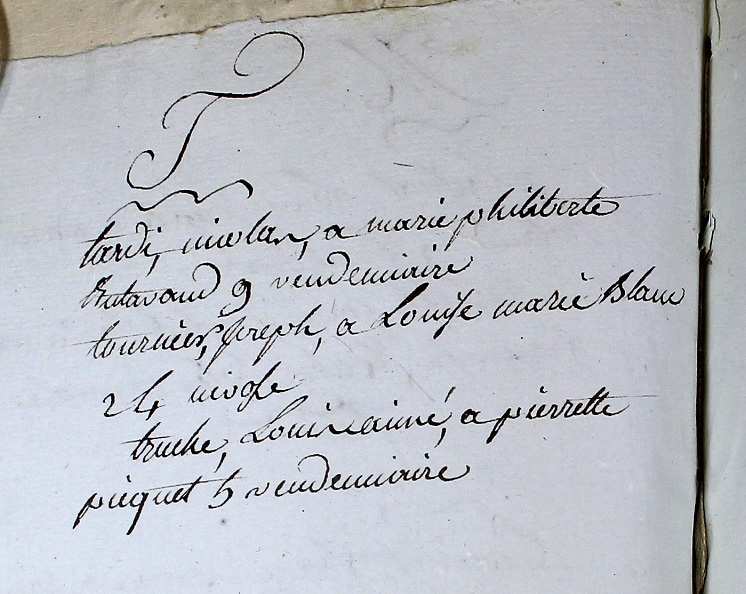 T
tardi, nicolas, a marie philiberte
9 vendemiaire
tournier, Joseph, a Louise marie Blanc
24 nivose
truche, Louis aimé, a pierrette
picquet 5 vendemiaire